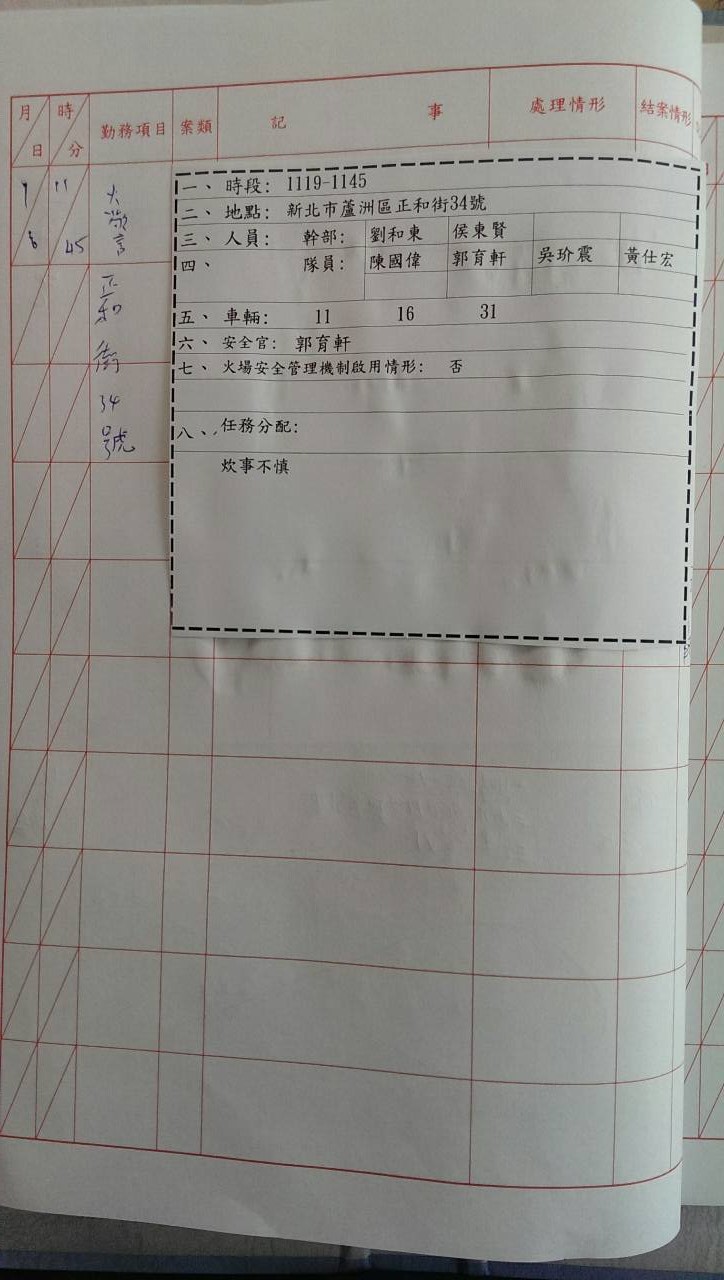 月 日 時 分 勤務項目 案類 記 事 處理情形 結案情形
7 11
8 45
火警
正和街34號
一、 時段: 1119-1145
二、 地點: 新北市蘆洲區正和街34號
三、 人員: 幹部: 劉和東 侯東賢
四、 隊員: 陳國偉 郭育軒 吳玠震 黃仕宏
五、 車輛: 11 16 31
六、 安全官: 郭育軒
七、 火場安全管理機制啟用情形: 否
八、 任務分配:
炊事不慎